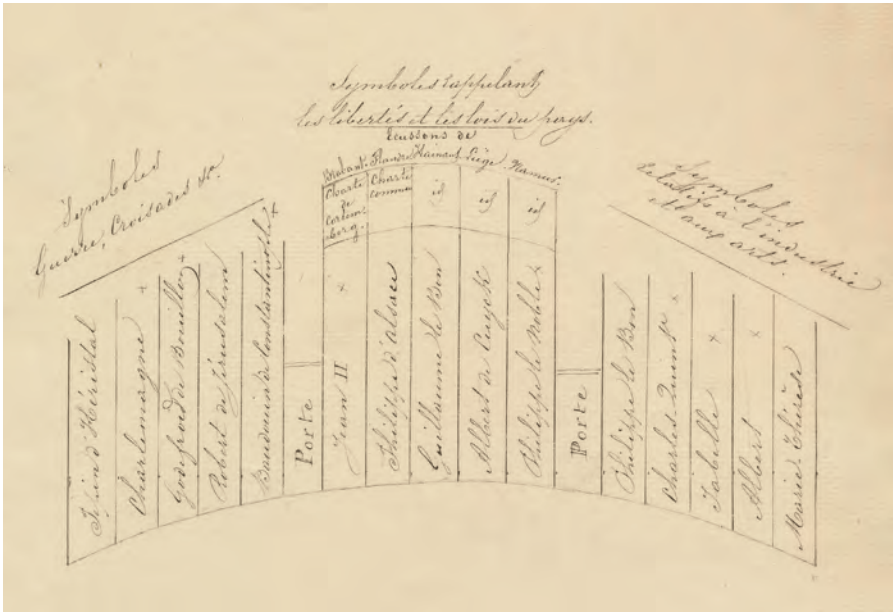 Symboles rappelant
les libertés et les lois du pays.
Ecussons de
Brabant. Flandre Hainaut Liége. Namur.
Symboles
Guerre, Croisades &c.
Symboles
relatifs à l'industrie
et aux arts.
Charte
de
Cortem-
berg.
Charte
commun
id
id
id
Pepin d'Héristal
Charlemagne +
Godefroid de Bouillon +
Robert de Jérusalem
Baudouin de Constantinople +
Porte
Jean II x
Philippe d'alsace
Guillaume le Bon
Albert de Cuyck
Philippe le Noble x
Porte
Philippe le Bon
Charles-Quint x
Isabelle x
Albert x
Marie-Thérèse